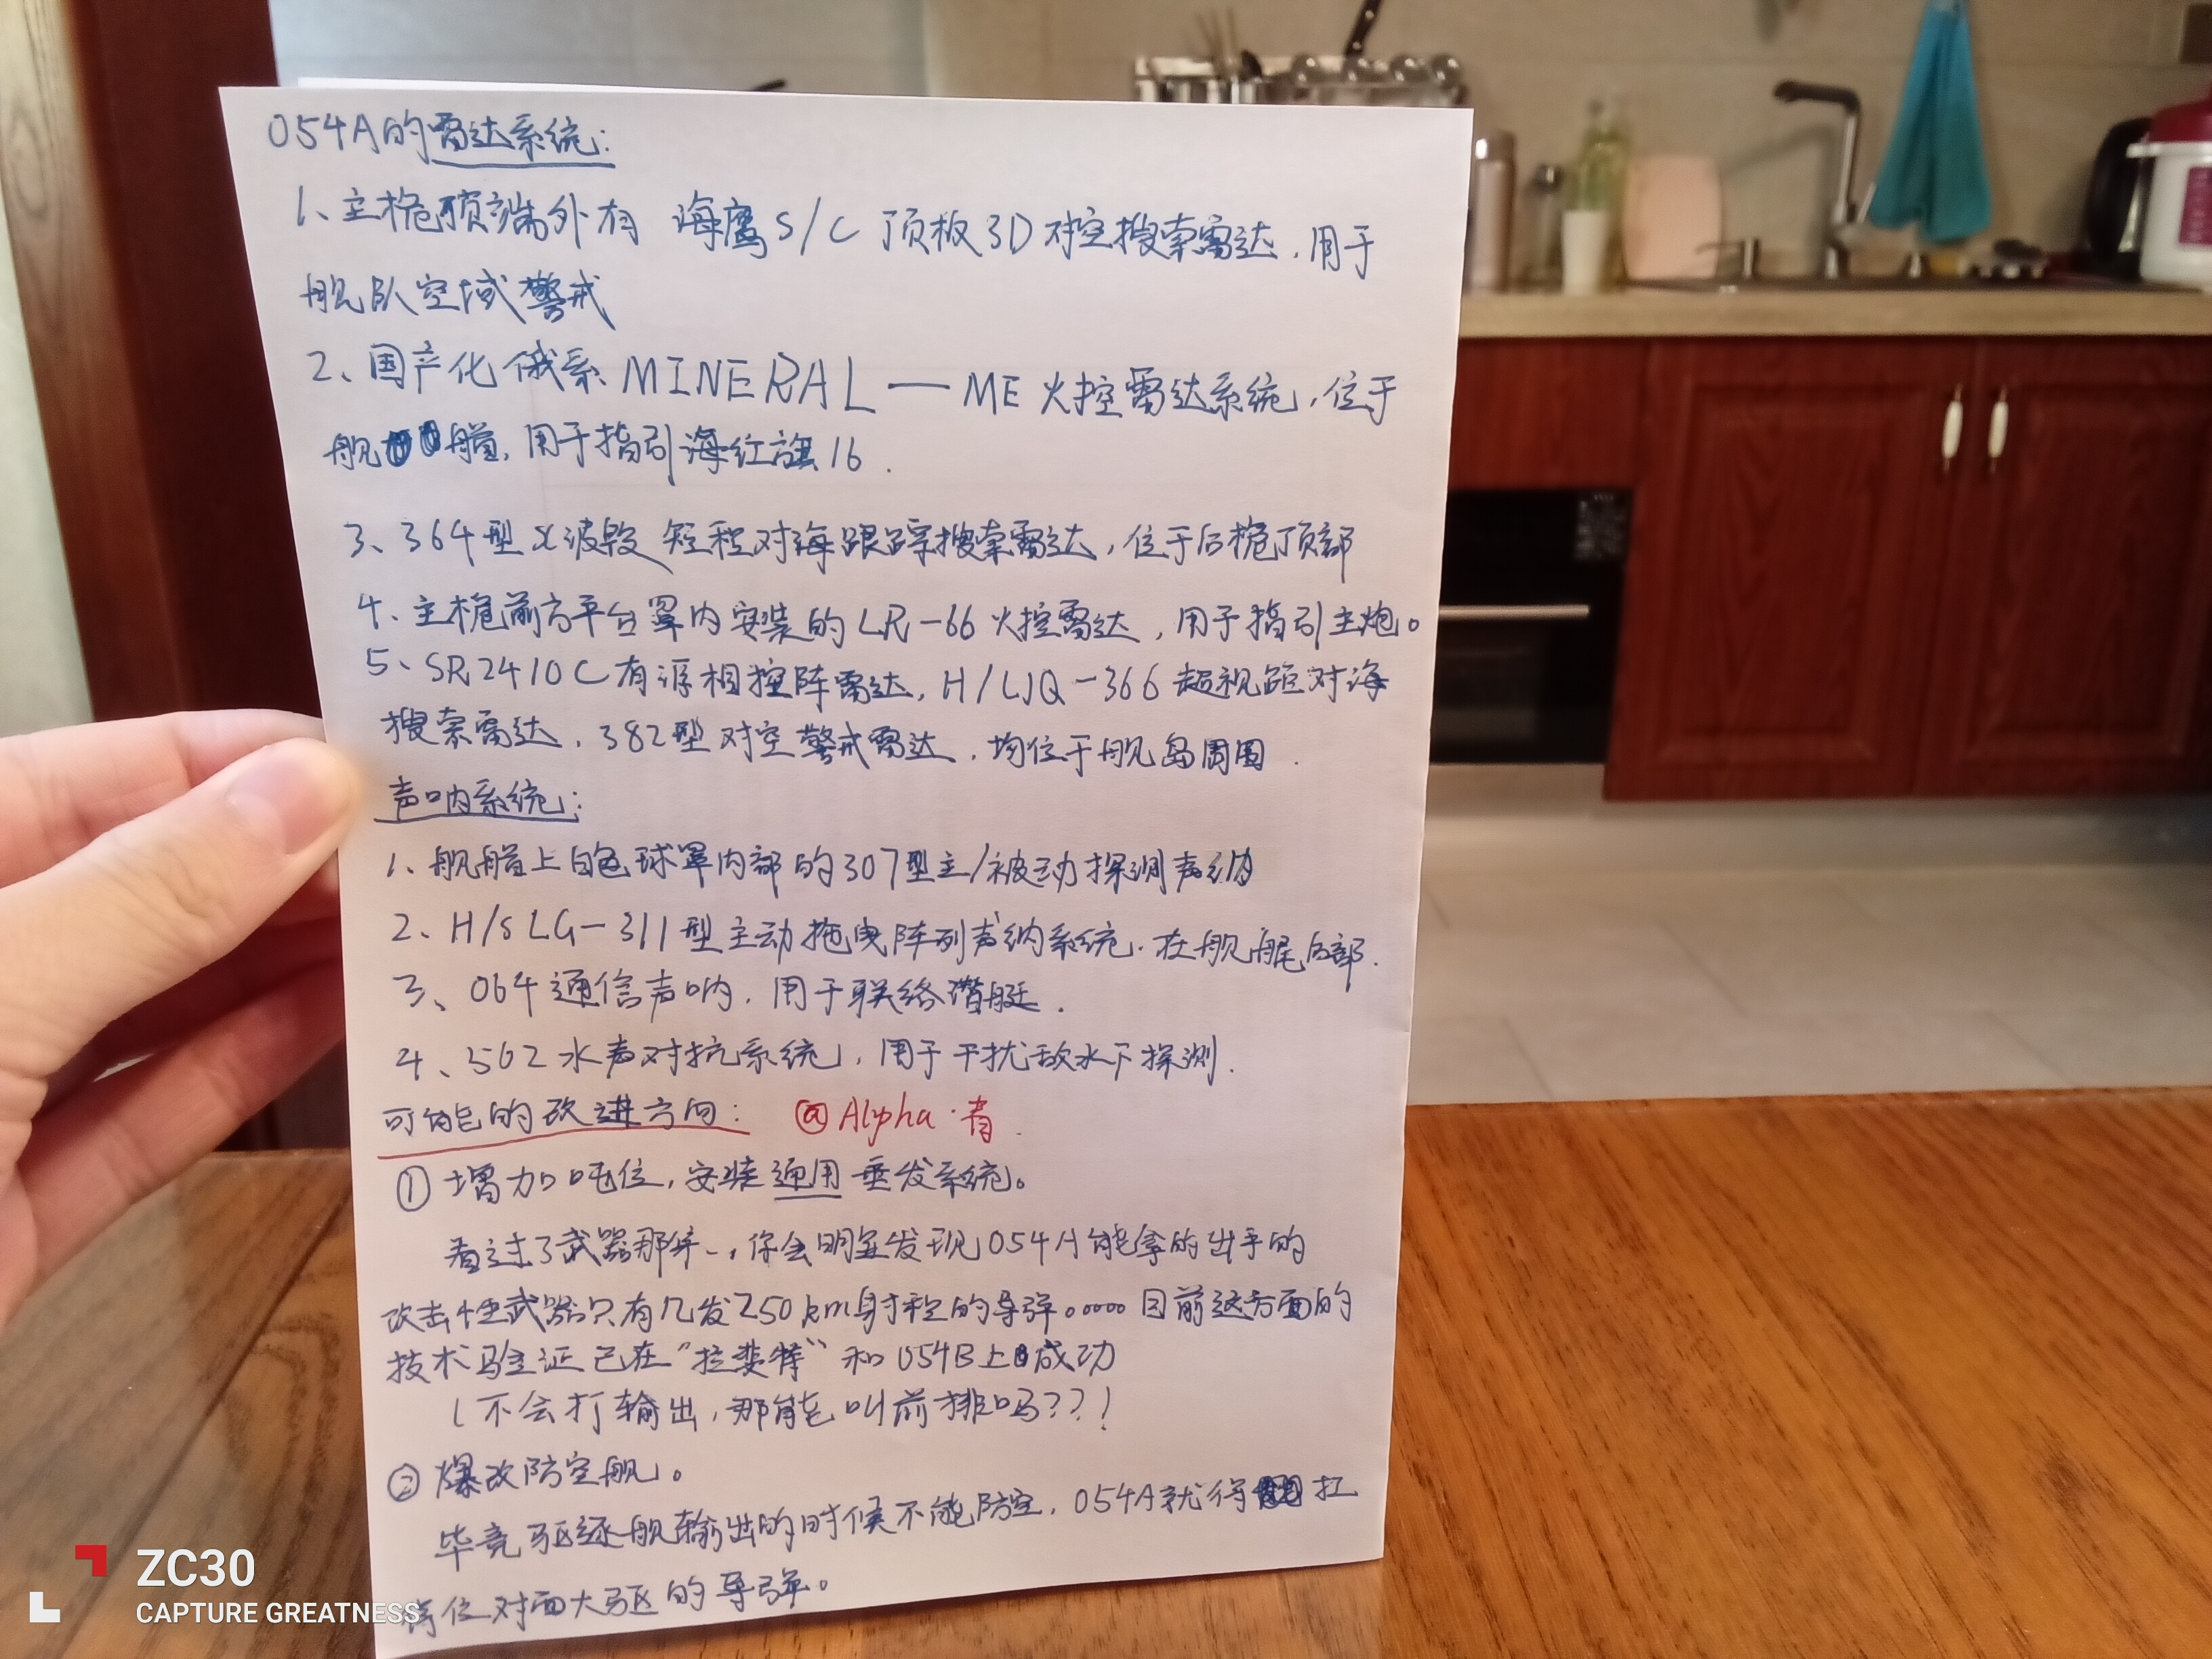 054A的雷达系统:
1、主桅顶端外有 海鹰S/C 顶板3D对空搜索雷达,用于
舰队空域警戒
2、国产化俄系MINERAL—ME火控雷达系统,位于
舰艏,用于指引海红旗16.
3、364型X波段短程对海跟踪搜索雷达,位于后桅顶部
4、主桅前方平台罩内安装的LR-66火控雷达,用于指引主炮。
5、SR2410C有源相控阵雷达,H/LJQ-366超视距对海
搜索雷达,382型对空警戒雷达,均位于舰岛周围.
声呐系统:
1、舰艏上白色球罩内部的307型主/被动探测声纳
2、H/SLG-311型主动拖曳阵列声纳系统.在舰艉后部.
3、064通信声呐,用于联络潜艇.
4、502水声对抗系统,用于干扰敌水下探测.
可能的改进方向: @Alpha·青.
①增加吨位,安装通用垂发系统。
看过了武器那第一,你会明显发现054A能拿的出手的
攻击性武器只有几发250km射程的导弹。。。。。目前这方面的
技术验证已在“拉斐特”和054B上成功
(不会打输出,那能叫前排吗???!
②爆改防空舰。
毕竟驱逐舰输出的时候不能防空,054A就得扛
住对面大驱的导弹。
ZC30
CAPTURE GREATNESS